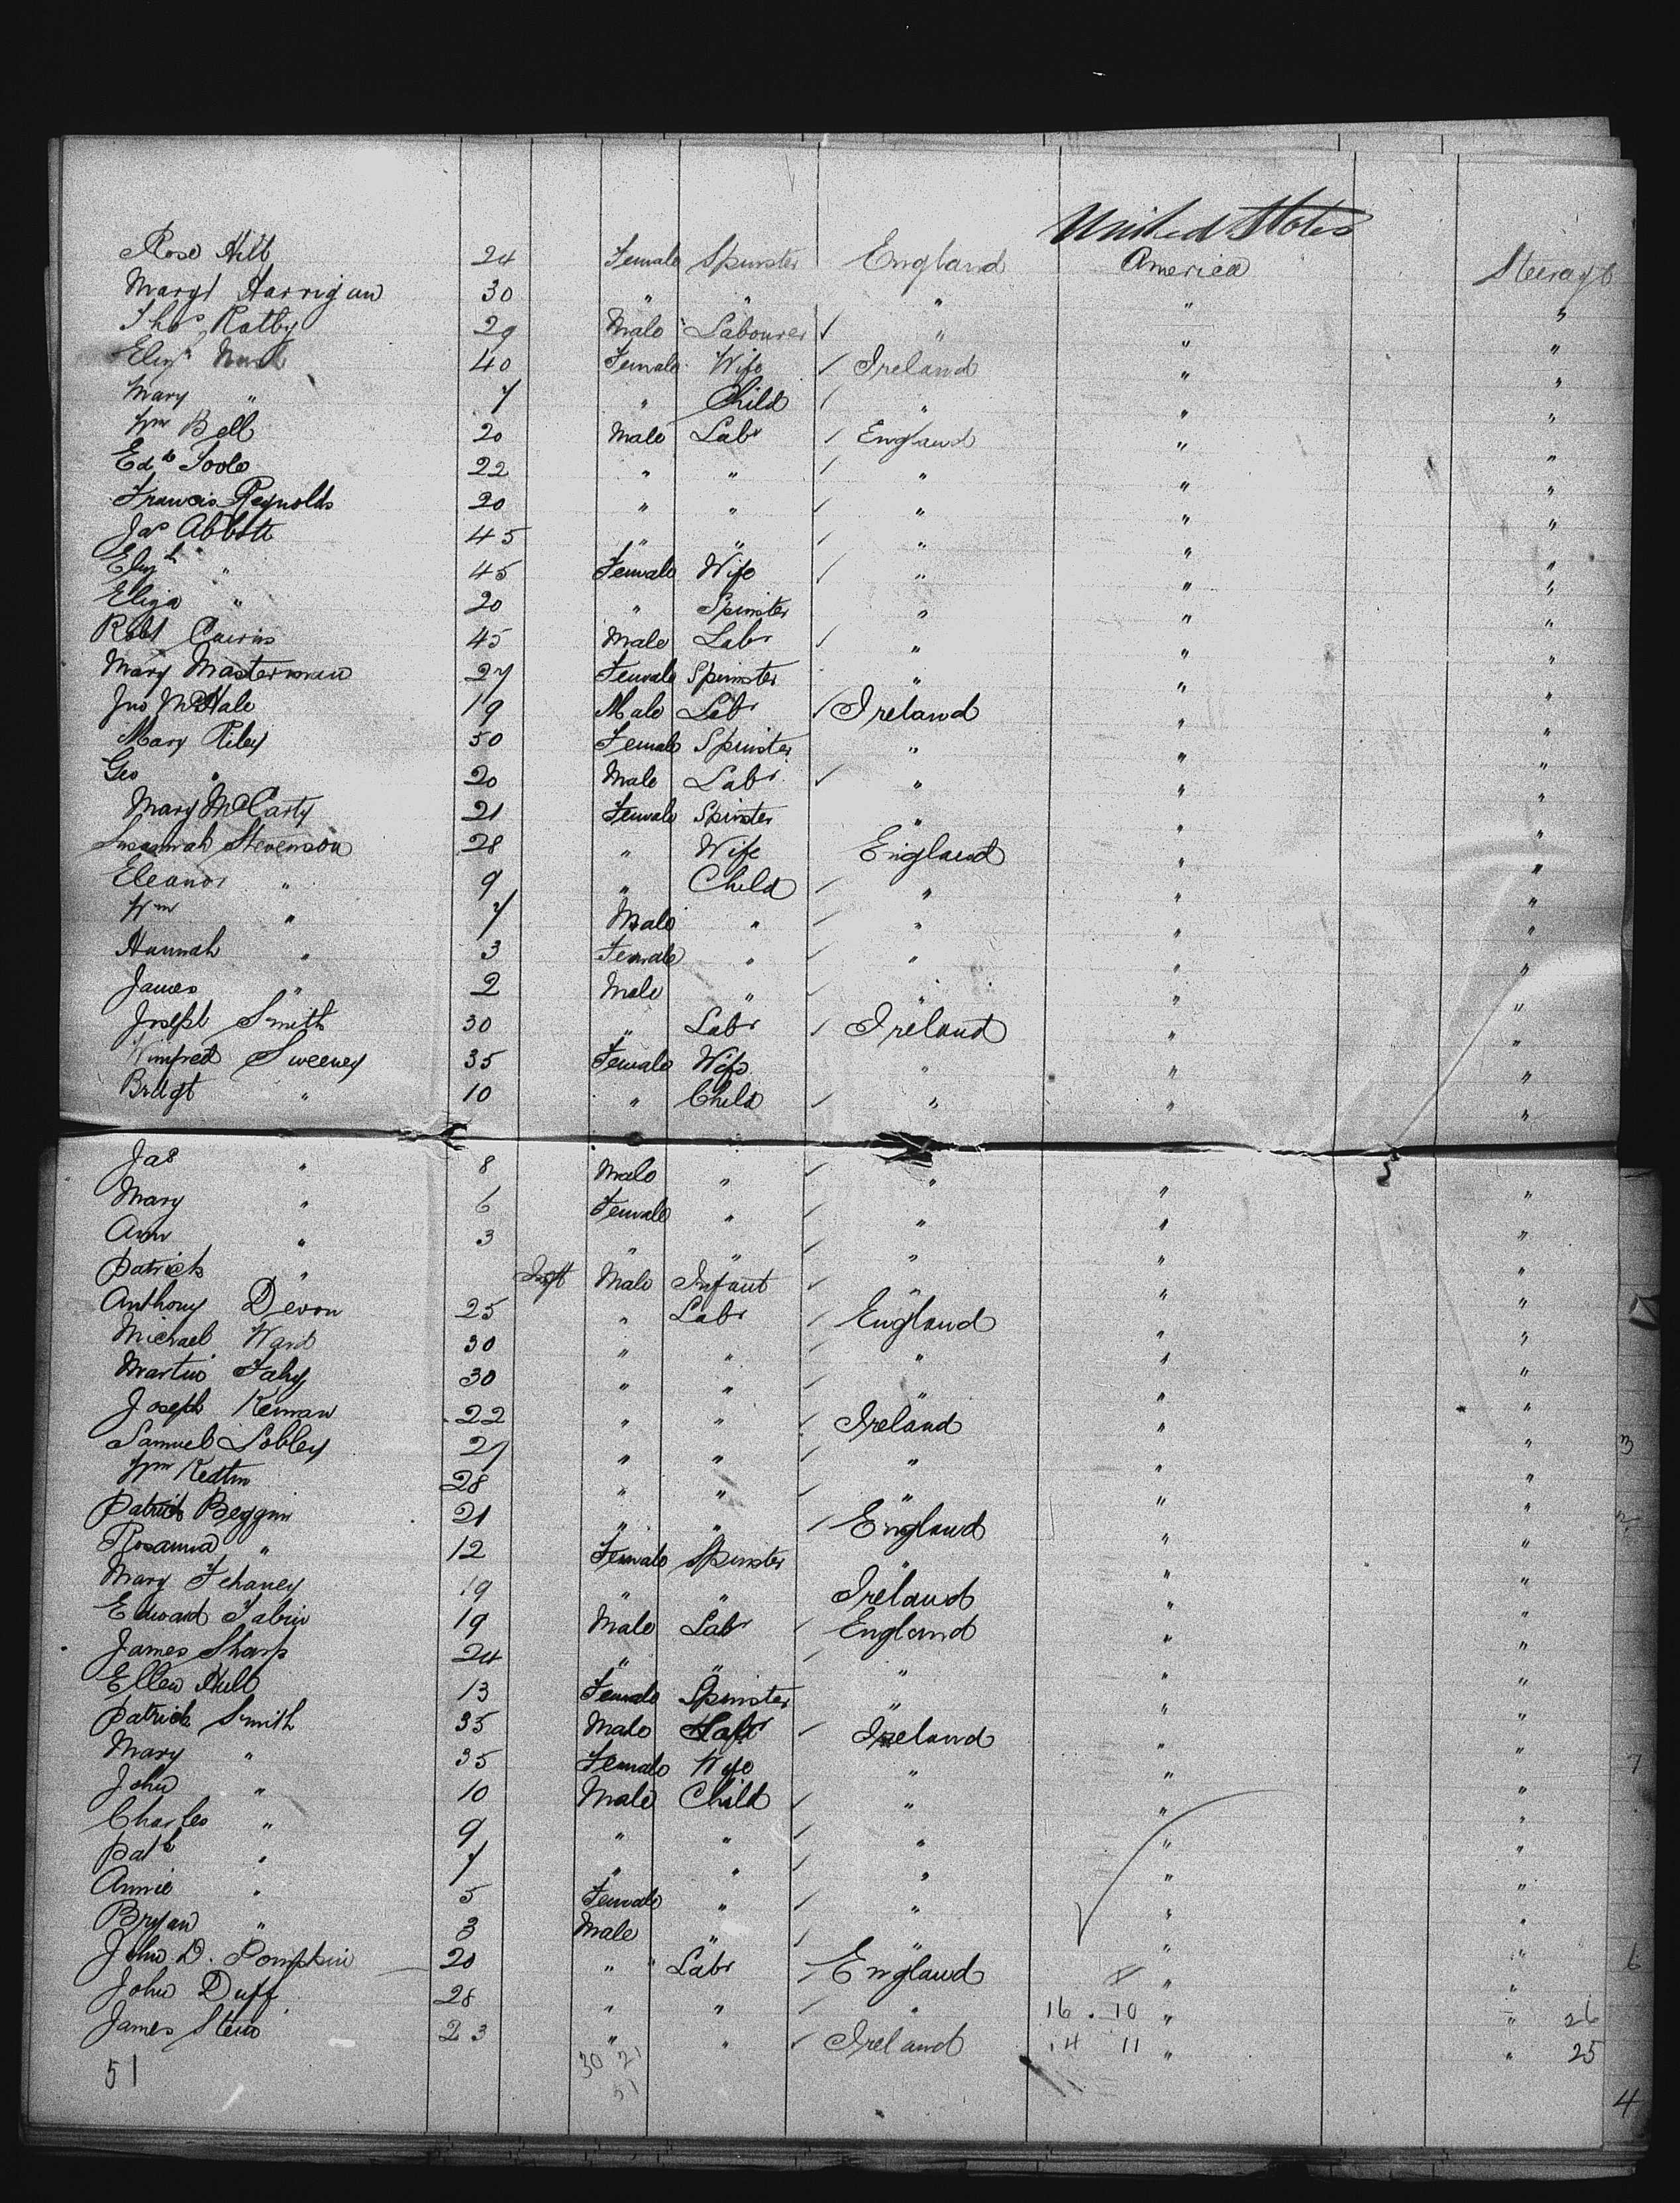 United States
Rose Hill 24 Female Spinster England America Steerage
Margt Harrigan 30 " " " " "
Thos Ratby 29 Male Labourer " " "
Elizth 40 Female Wife Ireland " "
Mary " 7 " Child " " "
Wm Bell 20 Male Labr England " "
Edwd Toole 22 " " " " "
Francis Reynolds 20 " " " " "
Jas Abbott 45 " " " " "
Elizth " 45 Female Wife " " "
Eliza " 20 " Spinster " " "
Robt Cairns 45 Male Labr " " "
Mary Masterman 27 Female Spinster " " "
Jno McHale 19 Male Labr Ireland " "
Mary Riley 50 Female Spinster " " "
Geo " 20 Male Labr " " "
Mary McCarty 21 Female Spinster " " "
Susannah Stevenson 28 " Wife England " "
Eleanor " 9 " Child " " "
Wm " 7 Male " " " "
Hannah " 3 Female " " " "
James " 2 Male " " " "
Joseph Smith 30 " Labr Ireland " "
Winifred Sweeney 35 Female Wife " " "
Bridgt " 10 " Child " " "
Jas " 8 Male " " " "
Mary " 6 Female " " " "
Ann " 3 " " " " "
Patrick " Inft Male Infant " " "
Anthony Devon 25 " Labr England " "
Michael Ward 30 " " " " "
Martin Fahy 30 " " " " "
Joseph Kernan 22 " " Ireland " "
Samuel Lobley 27 " " " " "
Wm 28 " " " " "
Patrick Beggin 21 " " England " "
Rosanna " 12 Female Spinster " " "
Mary Fehaney 19 " " Ireland " "
Edward Fabrin 19 Male Labr England " "
James Sharp 24 " " " " "
Ellen Hull 13 Female Spinster " " "
Patrick Smith 35 Male Labr Ireland " "
Mary " 35 Female Wife " " "
John " 10 Male Child " " "
Charles " 9 " " " " "
Patk " 7 " " " " "
Annie " 5 Female " " " "
Bryan " 3 Male " " " "
John D. Pompkin 20 " Labr England " "
John Duff 28 " " " 16 . 10 " " 26
James Stew 23 " " Ireland 14 11 " " 25
51 30 21
51
3
7
6
4